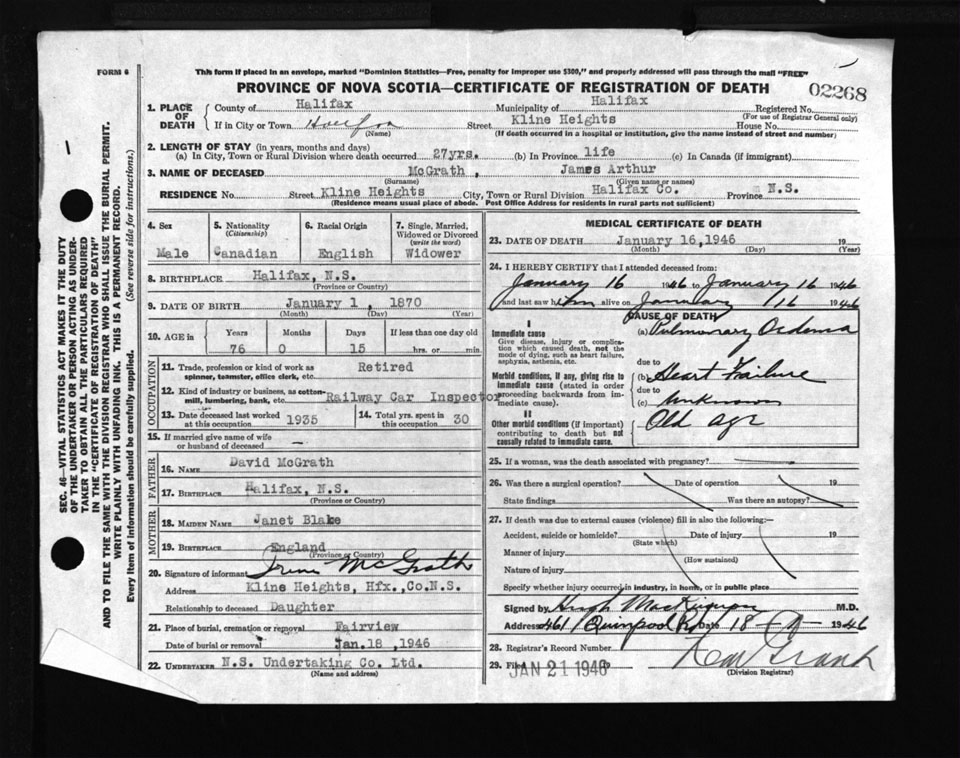 FORM 6
This form if placed in an envelope, marked "Dominion Statistics—Free, penalty for improper use $300," and properly addressed will pass through the mail "FREE"
PROVINCE OF NOVA SCOTIA—CERTIFICATE OF REGISTRATION OF DEATH
02268
1. PLACE OF DEATH
County of Halifax
Municipality of Halifax
Registered No.
(For use of Registrar General only)
If in City or Town
(Name)
Street Kline Heights
House No.
(If death occurred in a hospital or institution, give the name instead of street and number)
2. LENGTH OF STAY (in years, months and days)
(a) In City, Town or Rural Division where death occurred 27yrs. (b) In Province life (c) In Canada (if immigrant)
3. NAME OF DECEASED McGrath, James Arthur
(Surname) (Given name or names)
RESIDENCE No. Street Kline Heights City, Town or Rural Division Halifax Co. Province N.S.
(Residence means usual place of abode. Post Office Address for residents in rural parts not sufficient)
4. Sex
Male
5. Nationality
(Citizenship)
Canadian
6. Racial Origin
English
7. Single, Married, Widowed or Divorced
(write the word)
Widower
8. BIRTHPLACE Halifax, N.S.
(Province or Country)
9. DATE OF BIRTH January 1, 1870
(Month) (Day) (Year)
10. AGE in
Years Months Days If less than one day old
76 0 15 hrs. or min.
OCCUPATION
11. Trade, profession or kind of work as spinner, teamster, office clerk, etc. Retired
12. Kind of industry or business, as cotton-mill, lumbering, bank, etc. Railway Car Inspector
13. Date deceased last worked at this occupation 1935
14. Total yrs. spent in this occupation 30
15. If married give name of wife or husband of deceased —
FATHER
16. NAME David McGrath
17. BIRTHPLACE Halifax, N.S.
(Province or Country)
MOTHER
18. MAIDEN NAME Janet Blake
19. BIRTHPLACE England
(Province or Country)
20. Signature of informant Irene McGrath
Address Kline Heights, Hfx.,Co.N.S.
Relationship to deceased Daughter
21. Place of burial, cremation or removal Fairview
Date of burial or removal Jan.18,1946
22. UNDERTAKER N.S. Undertaking Co. Ltd.
(Name and address)
MEDICAL CERTIFICATE OF DEATH
23. DATE OF DEATH January 16,1946 19
(Month) (Day)
24. I HEREBY CERTIFY that I attended deceased from:
January 16 1946 to January 16 1946
and last saw him alive on January 16 1946
CAUSE OF DEATH
I
Immediate cause
Give disease, injury or complication which caused death, not the mode of dying, such as heart failure, asphyxia, asthenia, etc.
(a) Pulmonary Oedema
due to
Morbid conditions, if any, giving rise to immediate cause (stated in order proceeding backwards from immediate cause).
(b) Heart Failure
due to
(c) Unknown
II
Other morbid conditions (if important) contributing to death but not causally related to immediate cause.
Old age
25. If a woman, was the death associated with pregnancy?
26. Was there a surgical operation? Date of operation 19
State findings Was there an autopsy?
27. If death was due to external causes (violence) fill in also the following:—
Accident, suicide or homicide? Date of injury 19
(State which)
Manner of injury
(How sustained)
Nature of injury
Specify whether injury occurred in industry, in home, or in public place
Signed by Hugh MacKinnon M.D.
Address 461 Quinpool Rd Date 18 1946
28. Registrar's Record Number
29. Filed JAN 21 1946
(Division Registrar)
SEC. 46—VITAL STATISTICS ACT MAKES IT THE DUTY
OF THE UNDERTAKER OR PERSON ACTING AS UNDER-
TAKER TO OBTAIN ALL THE PARTICULARS REQUIRED
IN THE "CERTIFICATE OF REGISTRATION OF DEATH"
AND TO FILE THE SAME WITH THE DIVISION REGISTRAR WHO SHALL ISSUE THE BURIAL PERMIT.
WRITE PLAINLY WITH UNFADING INK. THIS IS A PERMANENT RECORD.
Every item of information should be carefully supplied. (See reverse side for instructions.)